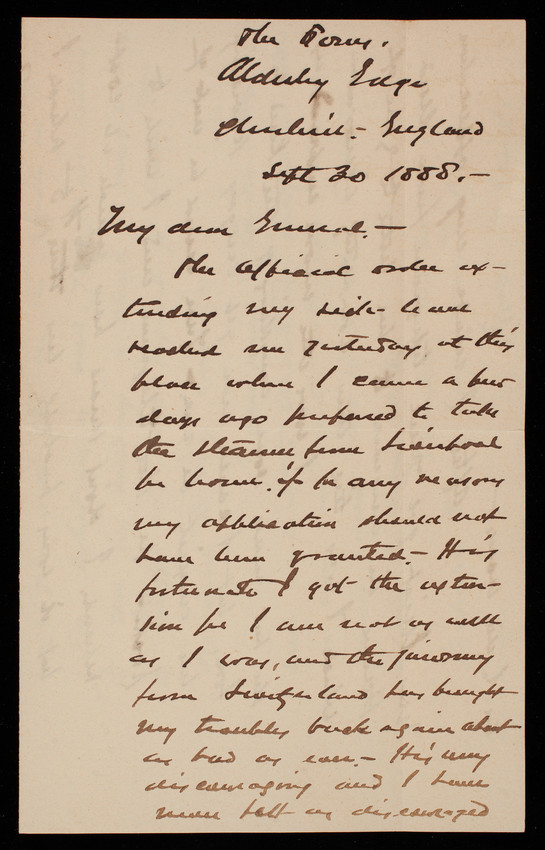 The Towers.
Alderley Edge
Cheshire - England
Sept 30 1888. -
My dear General, -
The official order ex-
tending my sick-leave
reached me yesterday at this
place where I came a few
days ago prepared to take
the steamer from Liverpool
for home, if for any reason
my application should not
have been granted. - It is
fortunate I got the exten-
sion for I am not as well
as I was, and the journey
from Switzerland has brought
my troubles back again about
as bad as ever. - It is very
discouraging and I have
never felt as discouraged